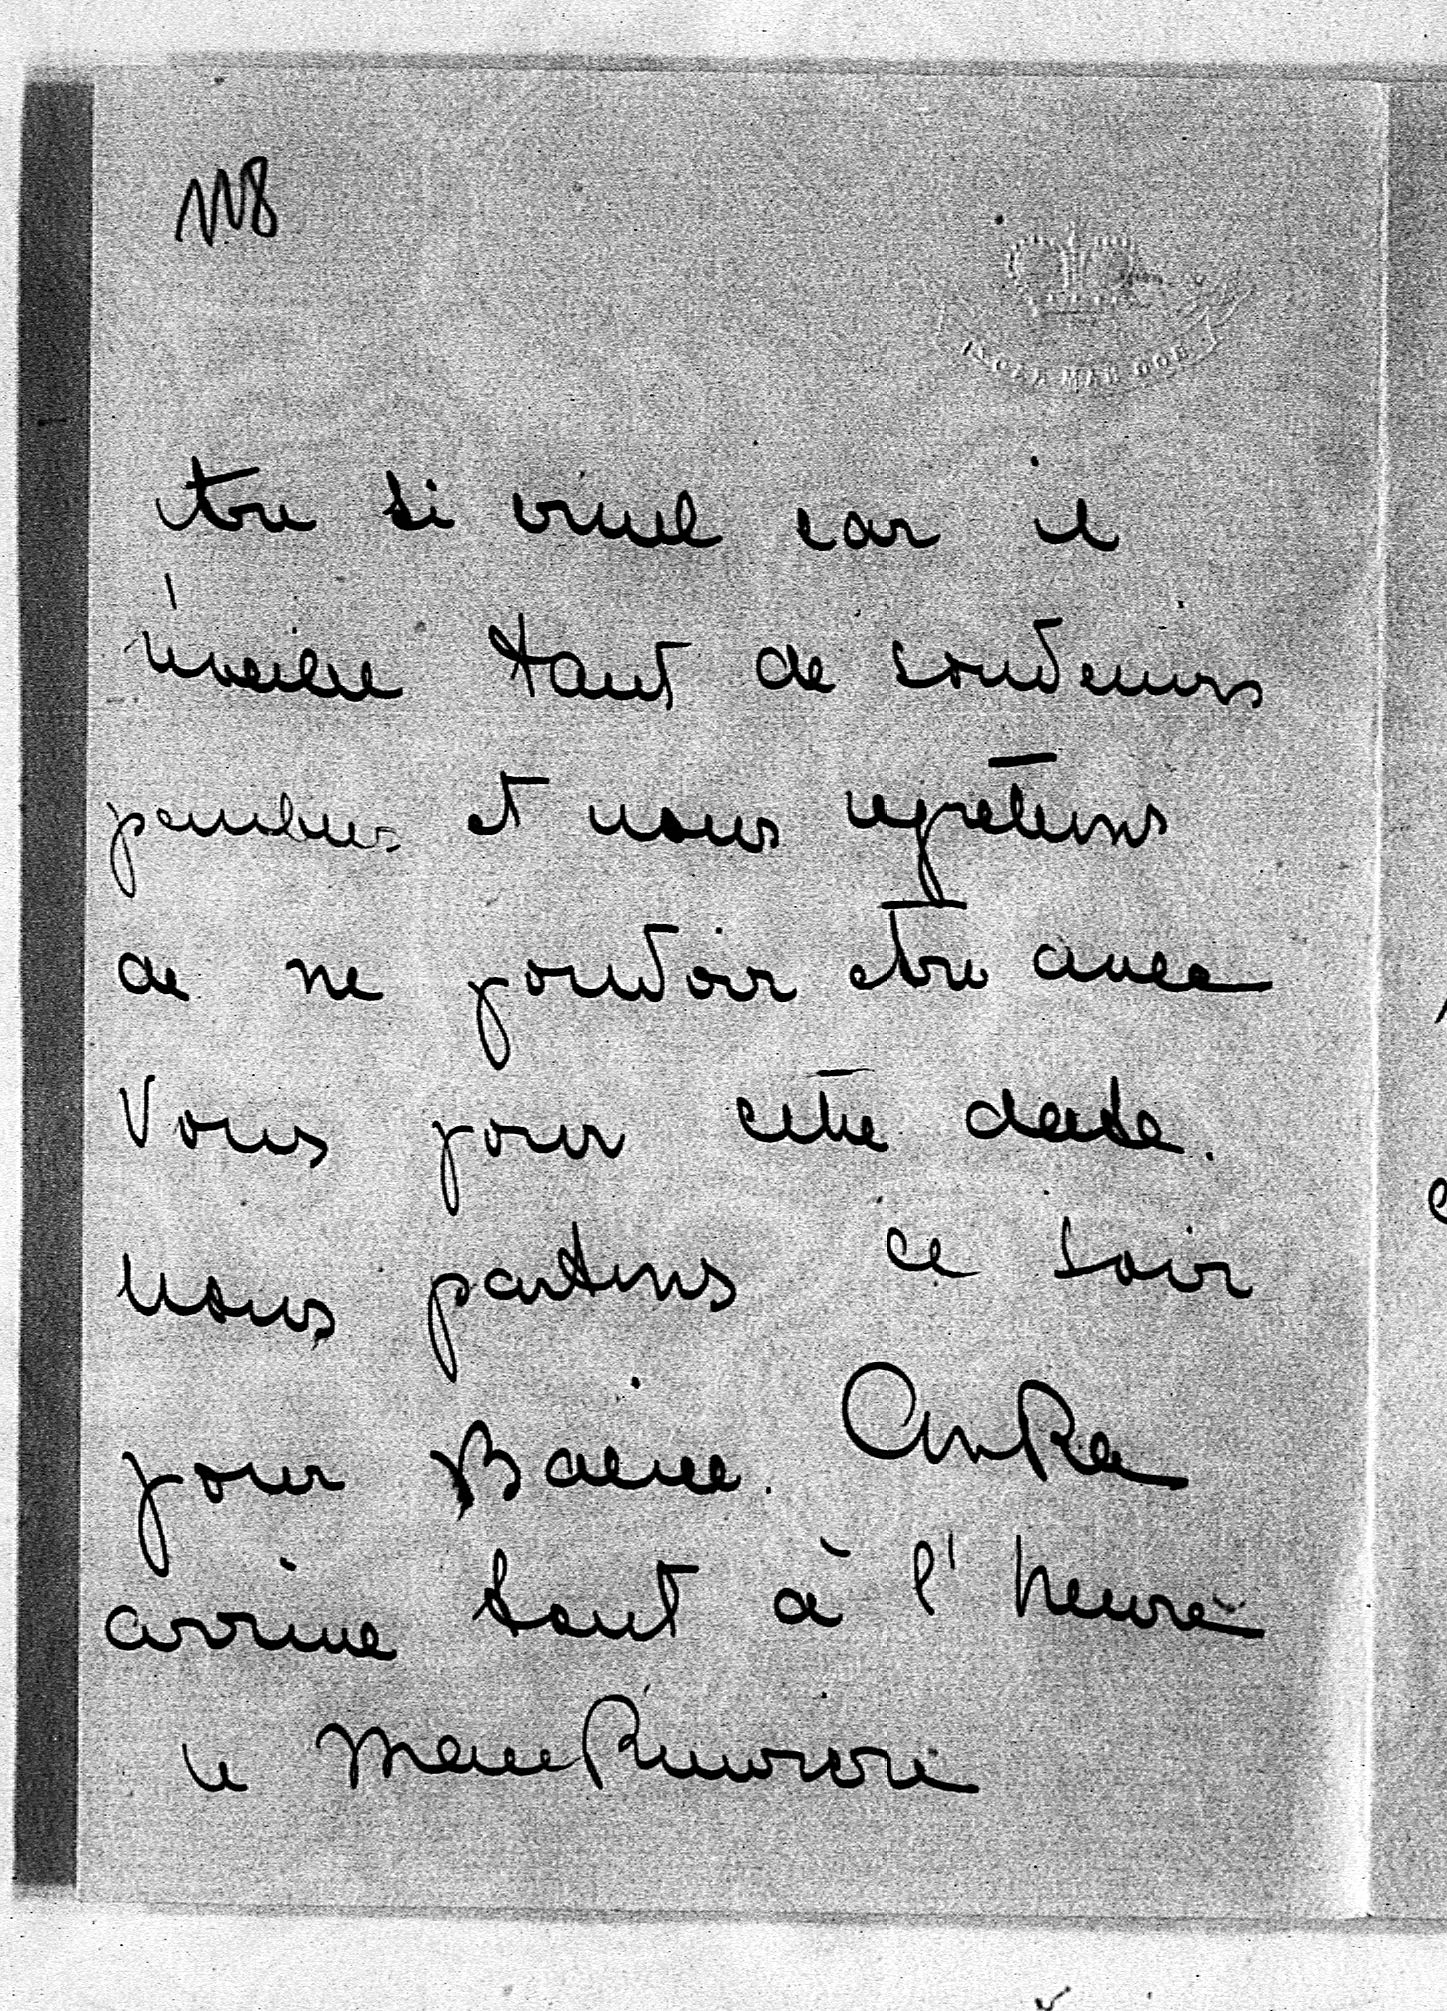 118
être si cruel car il
réveille tant de souvenirs
penibles et nous regrettons
de ne pouvoir être avec
Vous pour cette date.
Nous partons ce soir
pour
arrive tout à l'heure
le